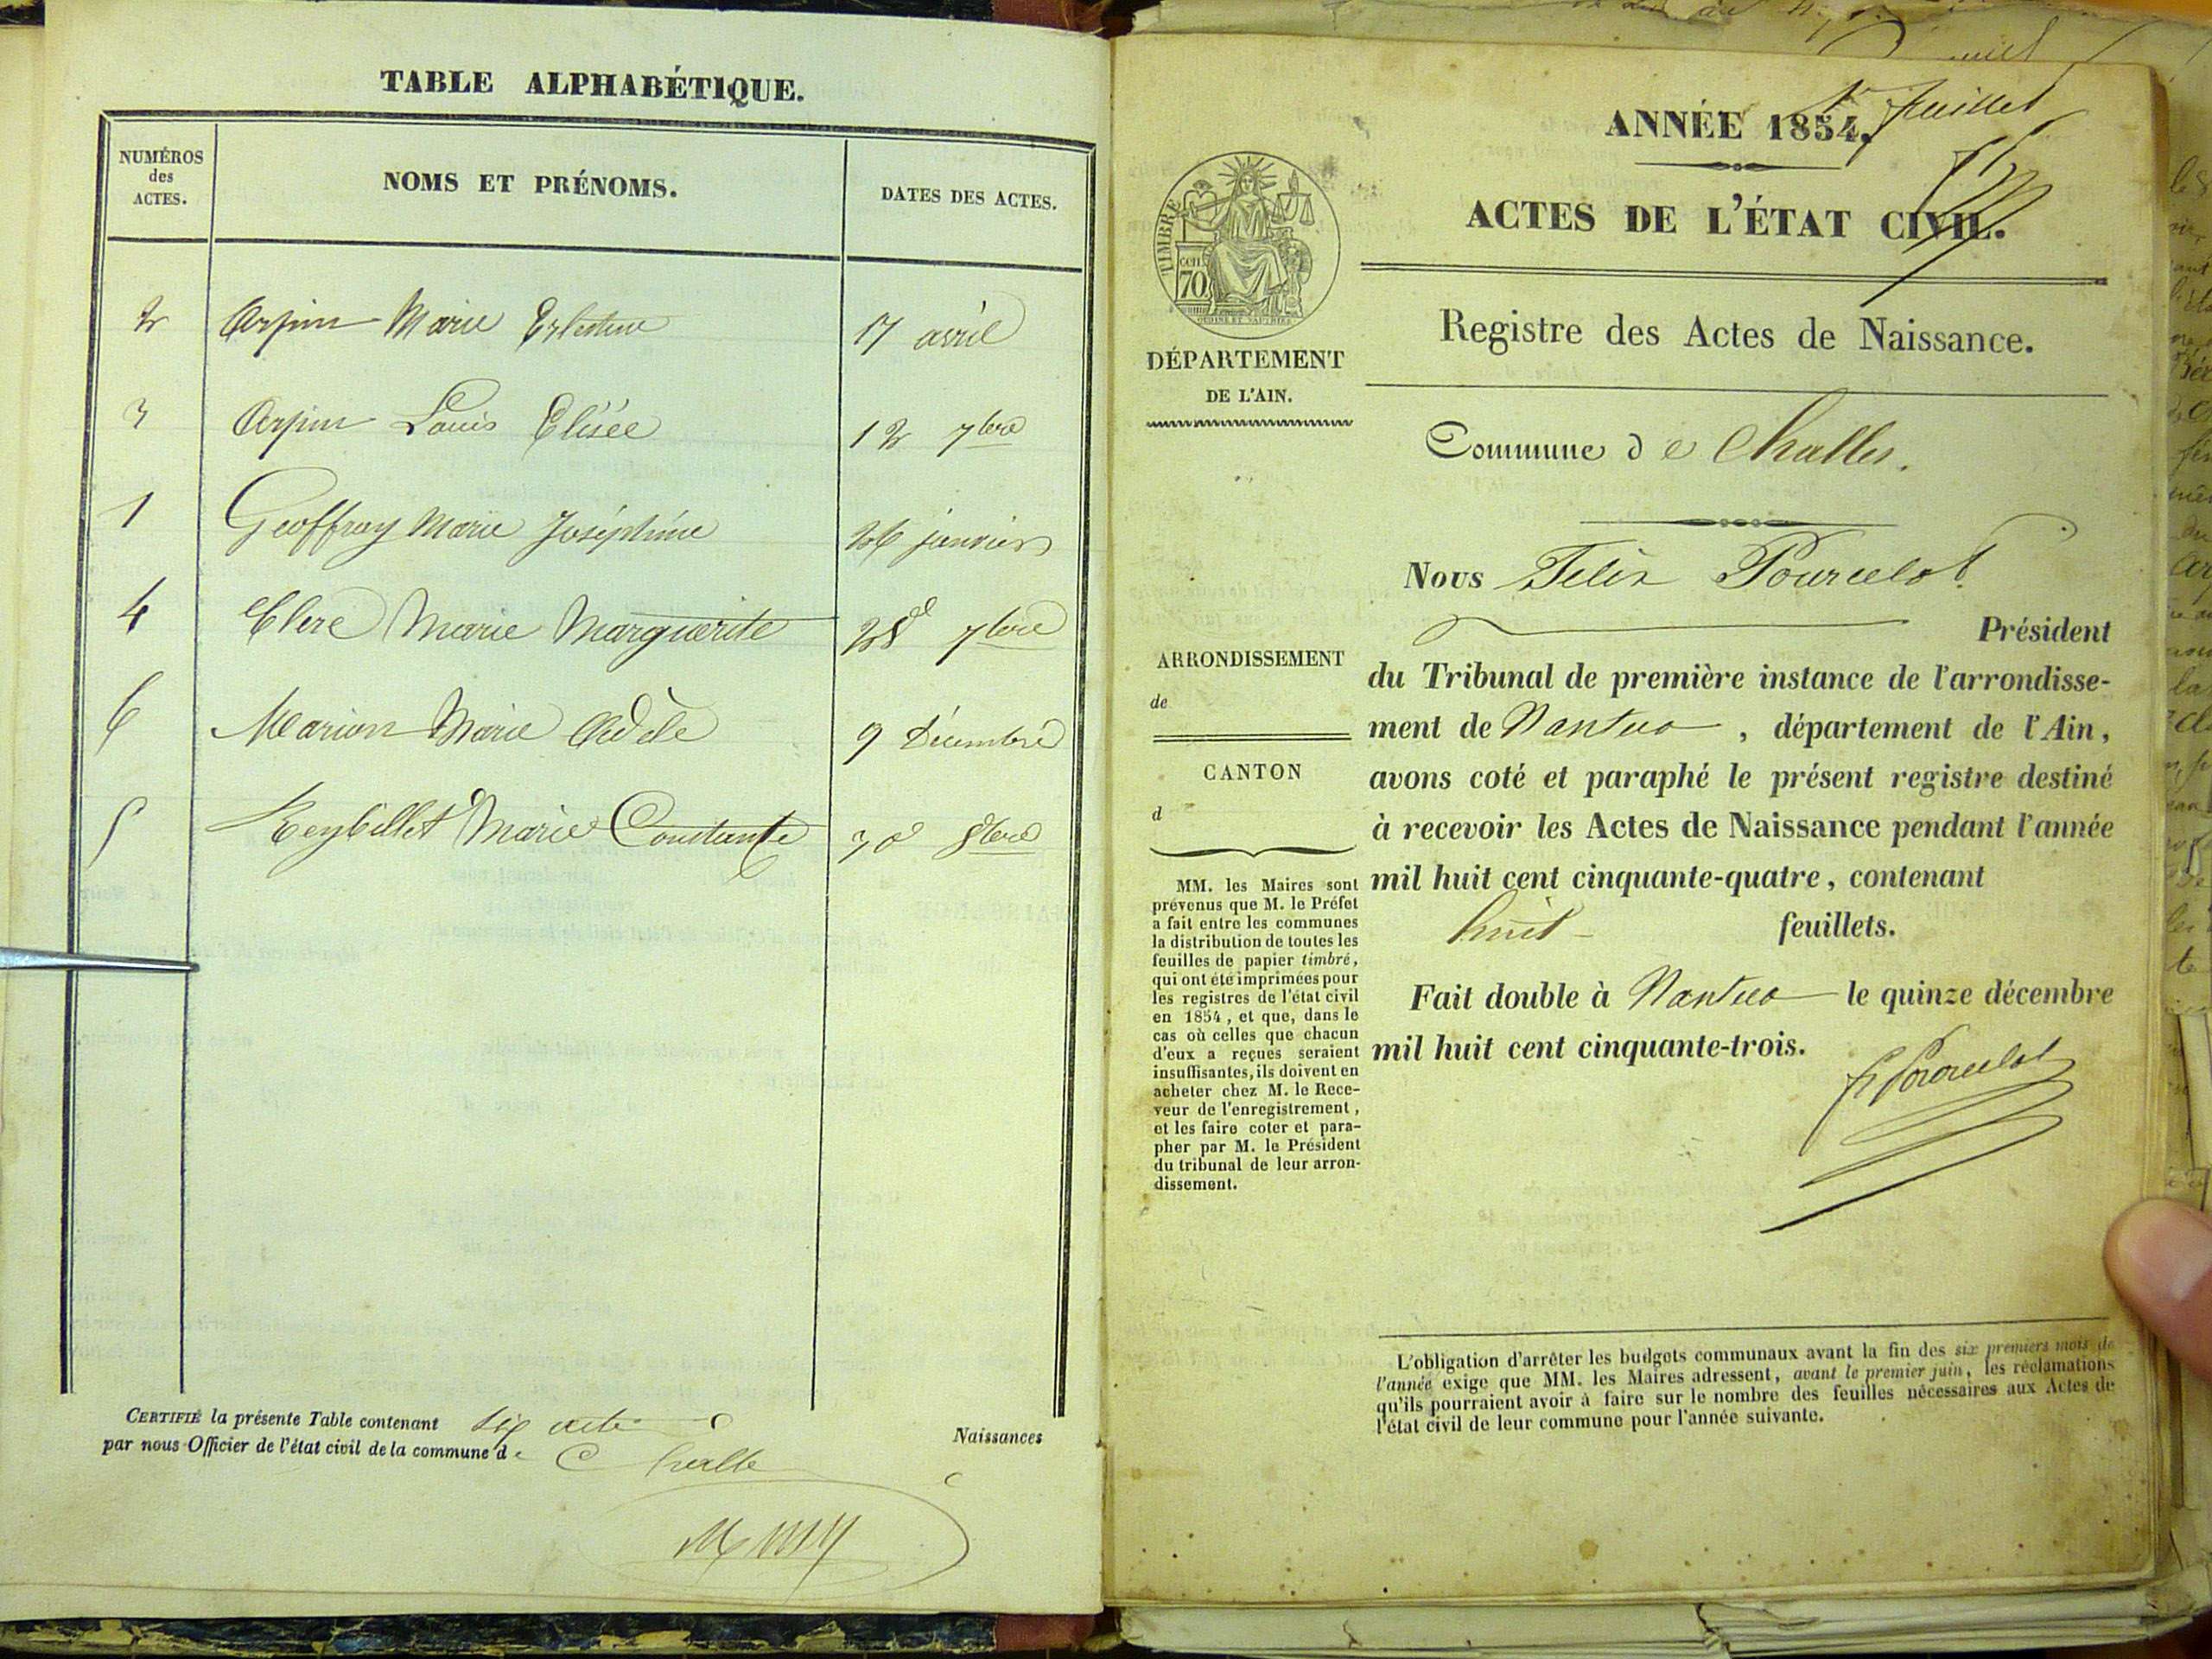 TABLE ALPHABÉTIQUE.
NUMÉROS
des
ACTES.
NOMS ET PRÉNOMS.
DATES DES ACTES.
2 Arpin Marie 17 avril
3 Arpin Louis Elisée 12 7bre
1 Geoffray Marie Joséphine 26 janvier
4 Clerc Marie Marguerite 28 7bre
6 Marion Marie Adèle 9 Décembre
5 Reybillet Marie Constante 30 8bre
CERTIFIÉ la présente Table contenant six acte Naissances
par nous Officier de l'état civil de la commune de Challe
ANNÉE 1854.
1er Juillet
ACTES DE L'ÉTAT CIVIL.
TIMBRE
70
Registre des Actes de Naissance.
DÉPARTEMENT
DE L'AIN.
Commune de Challes.
ARRONDISSEMENT
de
CANTON
d
MM. les Maires sont
prévenus que M. le Préfet
a fait entre les communes
la distribution de toutes les
feuilles de papier timbré,
qui ont été imprimées pour
les registres de l'état civil
en 1854, et que, dans le
cas où celles que chacun
d'eux a reçues seraient
insuffisantes, ils doivent en
acheter chez M. le Rece-
veur de l'enregistrement,
et les faire coter et para-
pher par M. le Président
du tribunal de leur arron-
dissement.
Nous Felix Pourcelot
Président
du Tribunal de première instance de l'arrondisse-
ment de Nantua, département de l'Ain,
avons coté et paraphé le présent registre destiné
à recevoir les Actes de Naissance pendant l'année
mil huit cent cinquante-quatre, contenant
huit feuillets.
Fait double à Nantua le quinze décembre
mil huit cent cinquante-trois.
F Pourcelot
L'obligation d'arrêter les budgets communaux avant la fin des six premiers mois de
l'année exige que MM. les Maires adressent, avant le premier juin, les réclamations
qu'ils pourraient avoir à faire sur le nombre des feuilles nécessaires aux Actes de
l'état civil de leur commune pour l'année suivante.